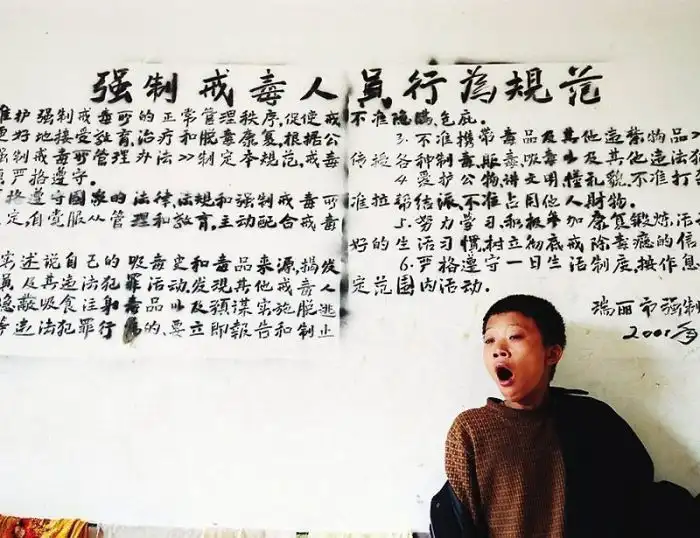 强制戒毒人員行為規范
维护强制戒毒所的正常管理秩序,促使戒
更好地接受教育,治疗和脱毒康复,根据公
强制戒毒所管理办法>>制定本规范,戒毒
严格遵守。
格遵守國家的法律,法规和强制戒毒所
定自觉服从管理和教育,主动配合戒毒
实述说自己的吸毒史和毒品来源,揭发
員及其违法犯罪活动,发现其他戒毒人
隐蔽吸食注射毒品以及预谋实施脱逃
等违法犯罪行為的,要立即報告和制止
不准隐瞒,包庇。
3.不准携带毒品及其他违禁物品
传授各种制毒,贩毒吸毒以及其他违法犯
4.爱护公物,讲文明,懂礼貌,不准打
准拉帮结派,不准占用他人財物。
5.努力学习,积极参加康复锻炼,活
好的生活习惯,树立彻底戒除毒瘾的信
6.严格遵守一日生活制度,按作息
定范围内活动。
瑞丽市强制
2001年